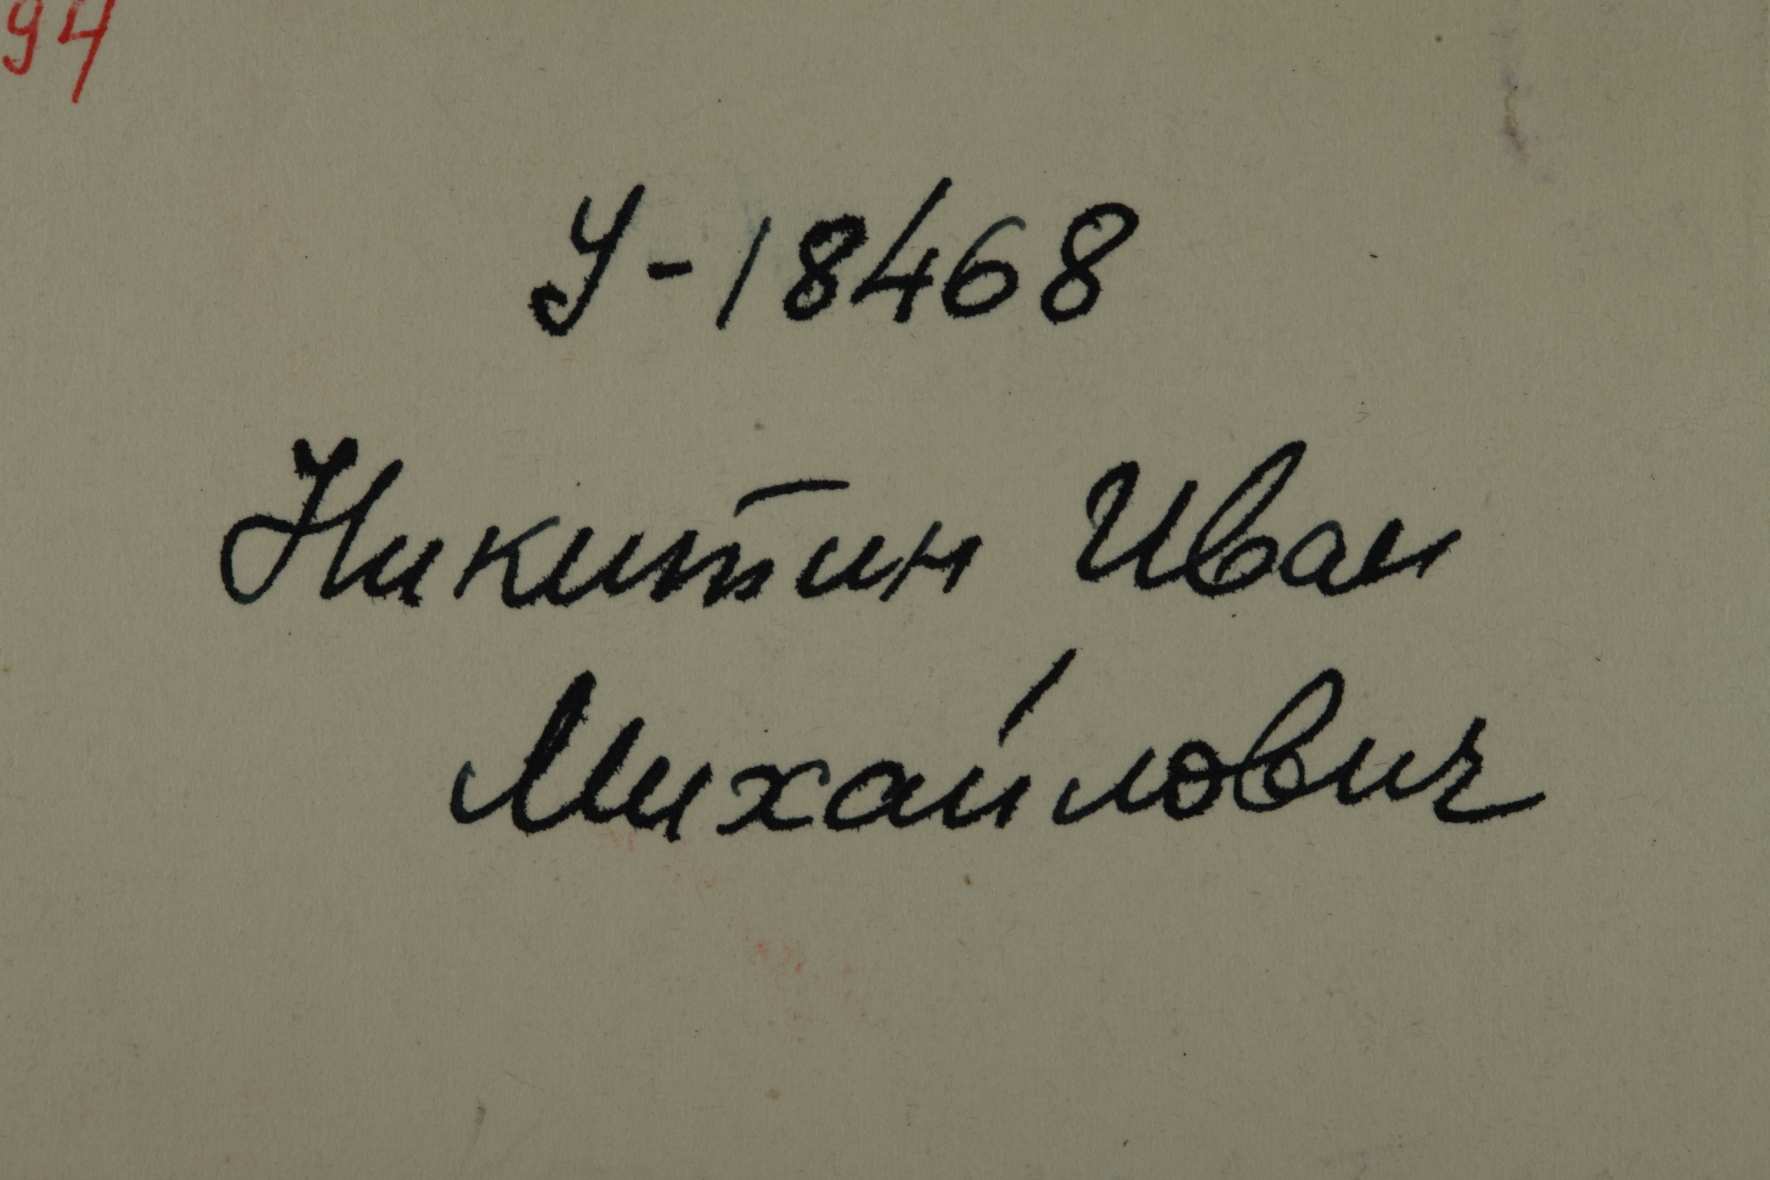 94
У-18468
Никитин Иван
Михайлович